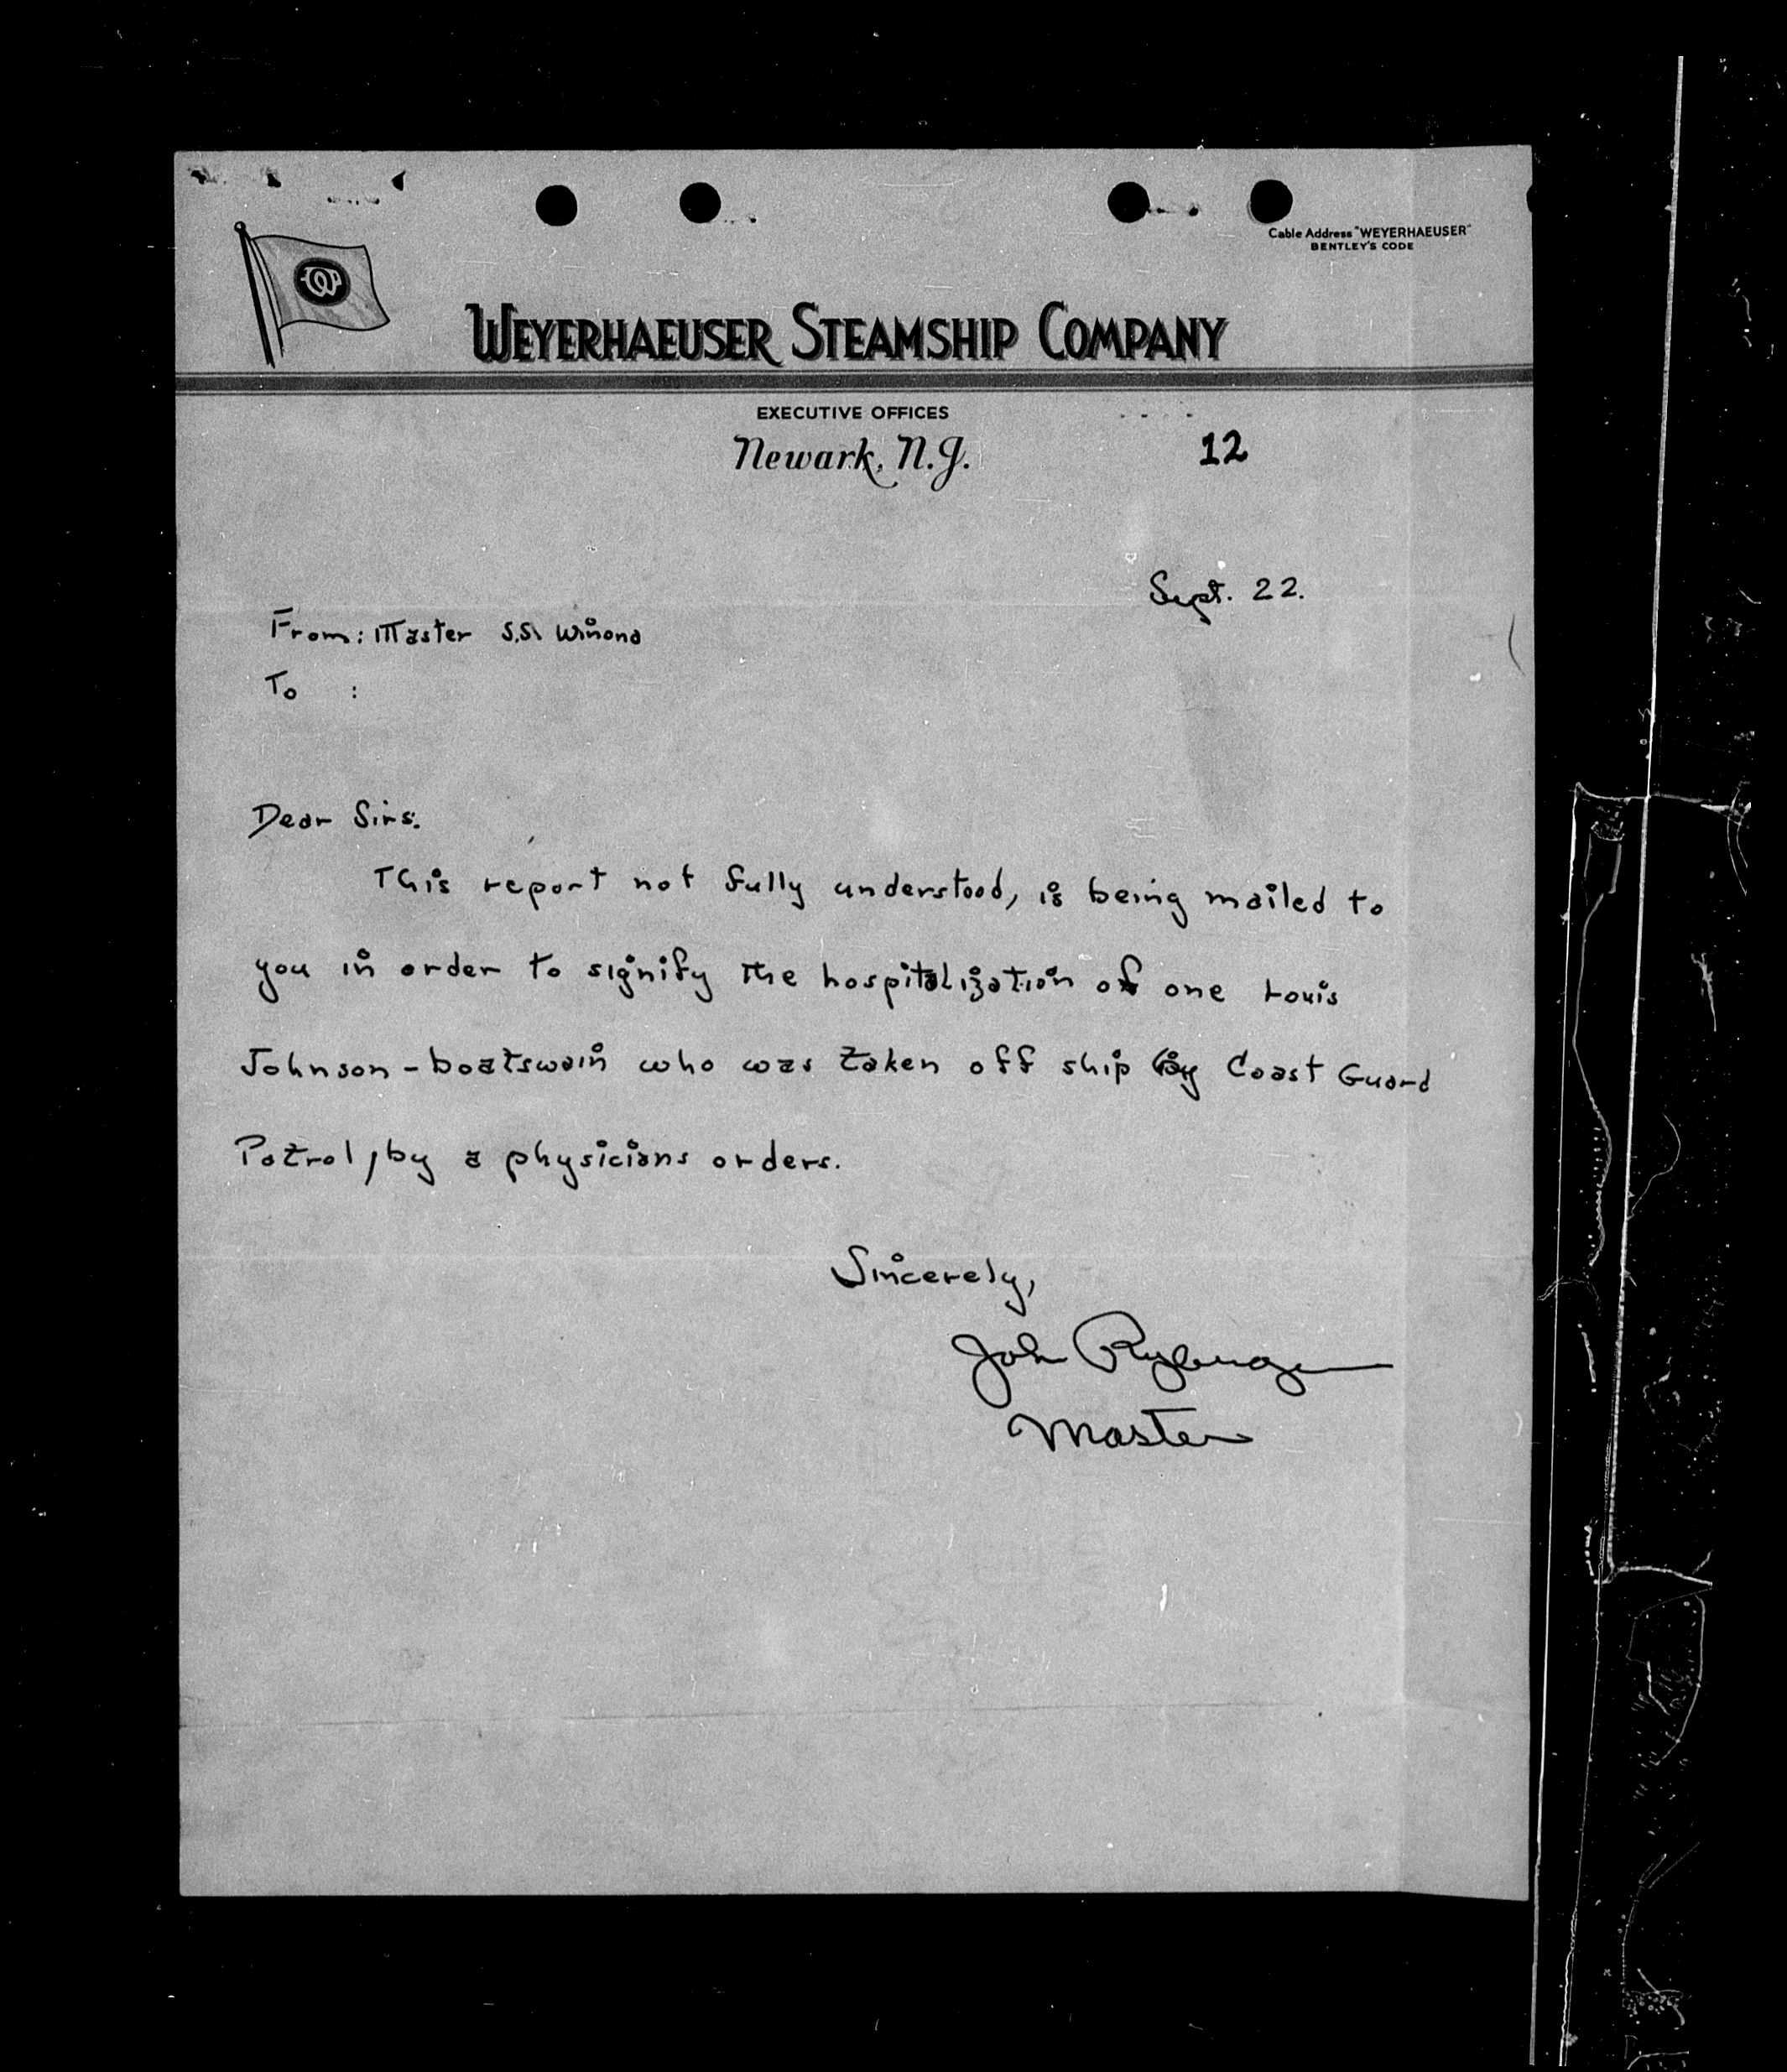 Cable Address "WEYERHAEUSER"
BENTLEY'S CODE
W
WEYERHAEUSER STEAMSHIP COMPANY
EXECUTIVE OFFICES
Newark, N.J.
12
Sept. 22.
From: Master S.S. Winona
To :
Dear Sirs:
This report not fully understood, is being mailed to
you in order to signify the hospitalization of one Louis
Johnson - boatswain who was taken off ship by Coast Guard
Patrol, by a physicians orders.
Sincerely,
John
Master